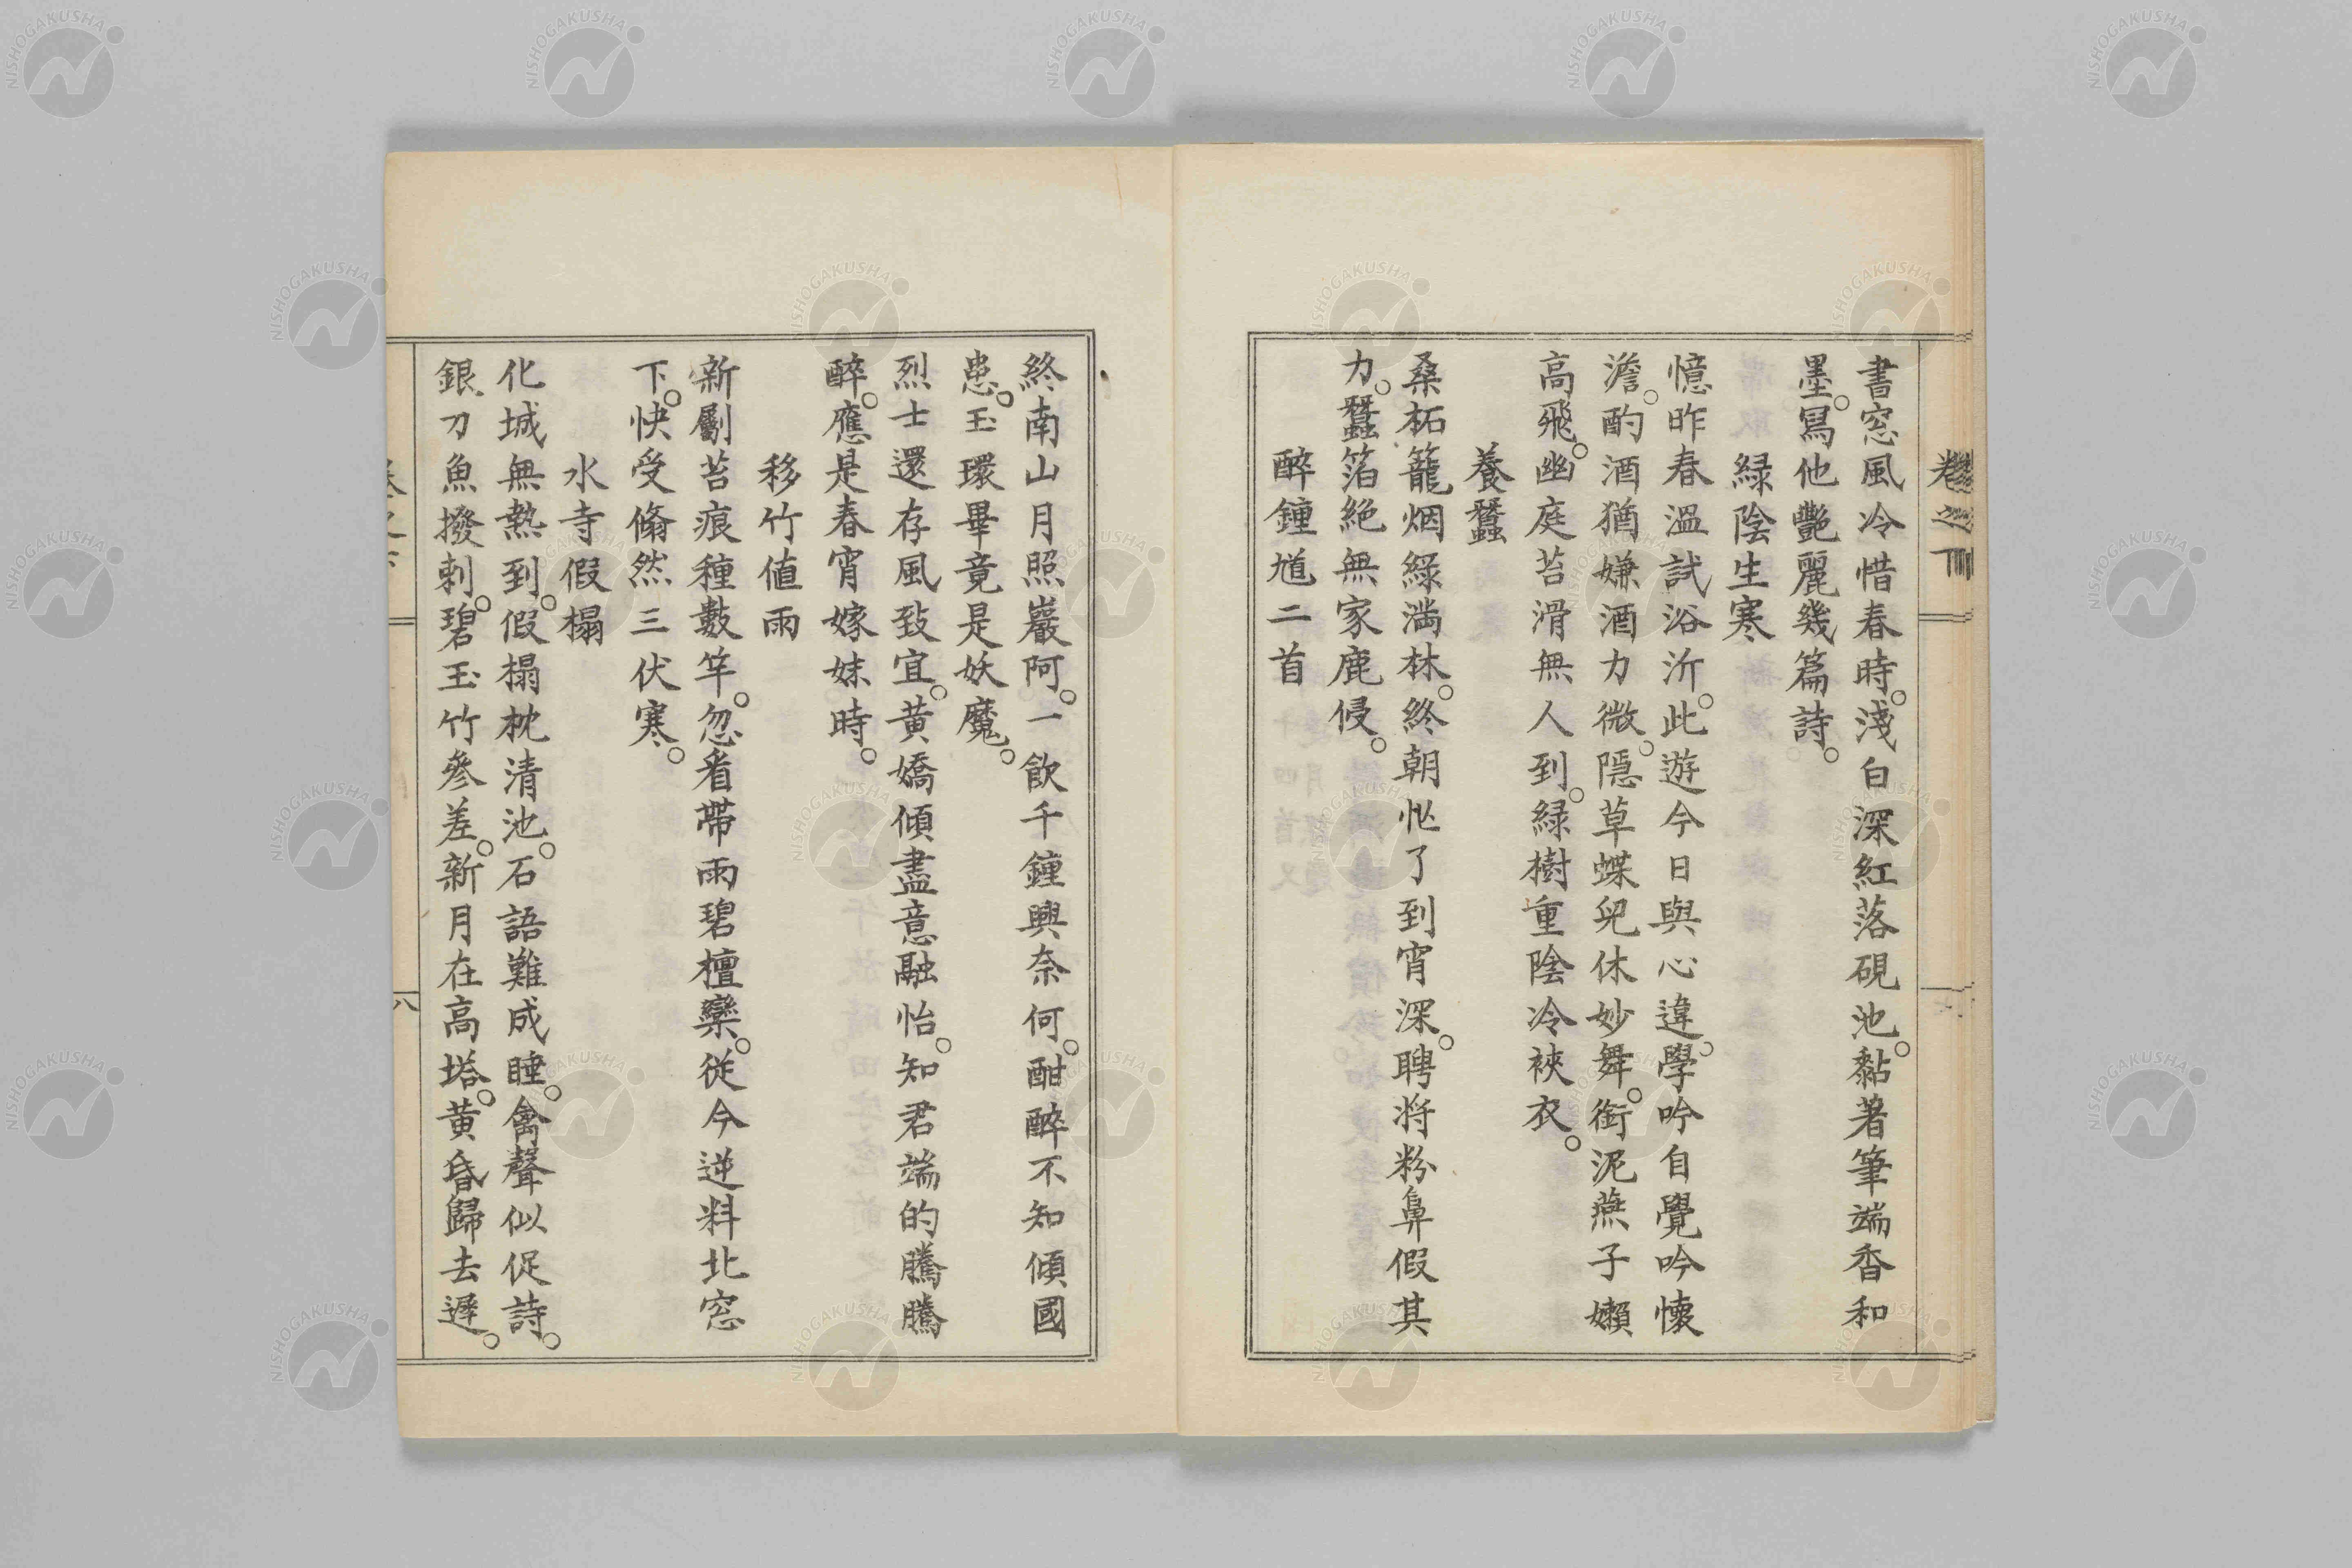 書窓風冷惜春時。淺白深紅落硯池。黏著筆端香和
墨。寫他艷麗幾篇詩。
緑陰生寒
憶昨春溫試浴沂。此遊今日與心違。學吟自覺吟懷
澹。酌酒猶嫌酒力微。隱草蝶兒休妙舞。銜泥燕子嬾
高飛。幽庭苔滑無人到。緑樹重陰冷裌衣。
養蠶
桑柘籠烟緑滿林。終朝忙了到宵深。聘將粉鼻假其
力。蠶箔絶無家鹿侵。
醉鍾馗二首
終南山月照巖阿。一飲千鍾興奈何。酣醉不知傾國
患。玉環畢竟是妖魔。
烈士還存風致宜。黄嬌傾盡意融怡。知君端的騰騰
醉。應是春宵嫁妹時。
移竹値雨
新劚苔痕種數竿。忽看帶雨碧檀欒。從今逆料北窓
下。快受翛然三伏寒。
水寺假榻
化城無熱到。假榻枕清池。石語難成睡。禽聲似促詩。
銀刀魚撥剌。碧玉竹參差。新月在高塔。黄昏歸去遲。
八
NISHOGAKUSHA